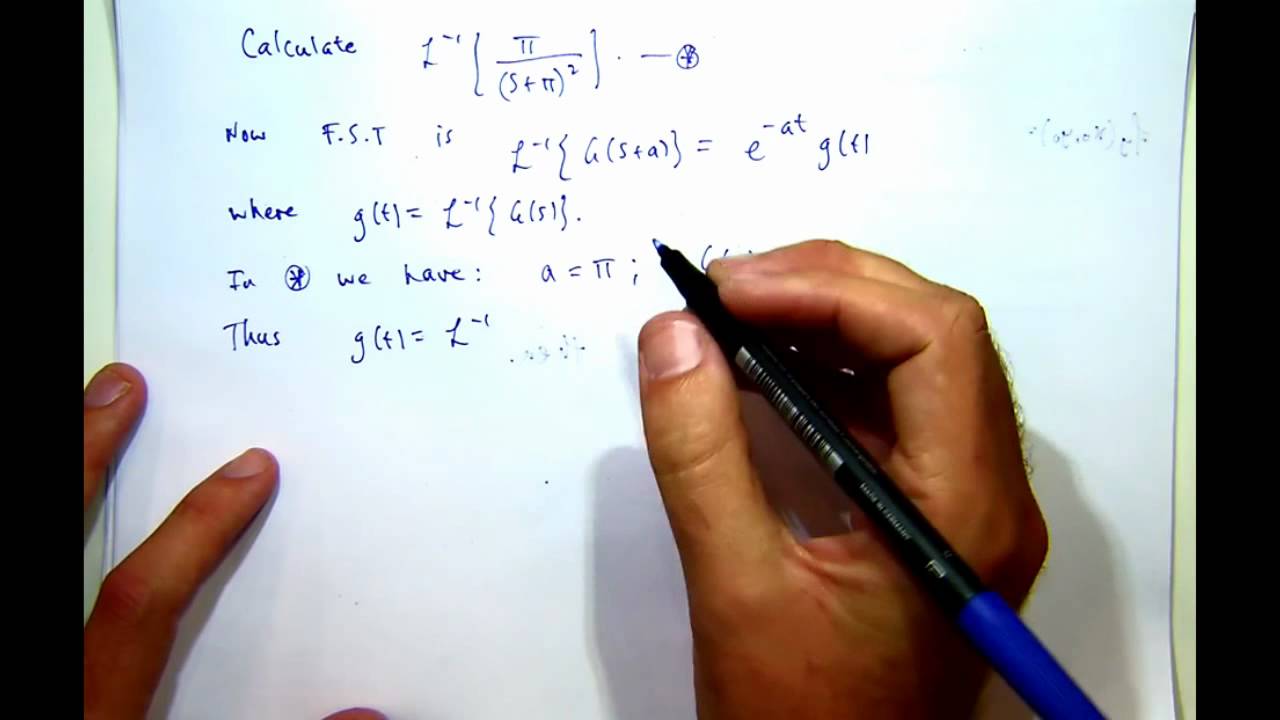 Calculate ℒ⁻¹{π/(s+π)²}. — ⊛
Now F.S.T is ℒ⁻¹{G(s+a)} = e^(-at) g(t)
where g(t) = ℒ⁻¹{G(s)}.
In ⊛ we have: a = π ; G(
Thus g(t) = ℒ⁻¹
MADE IN GERMANY